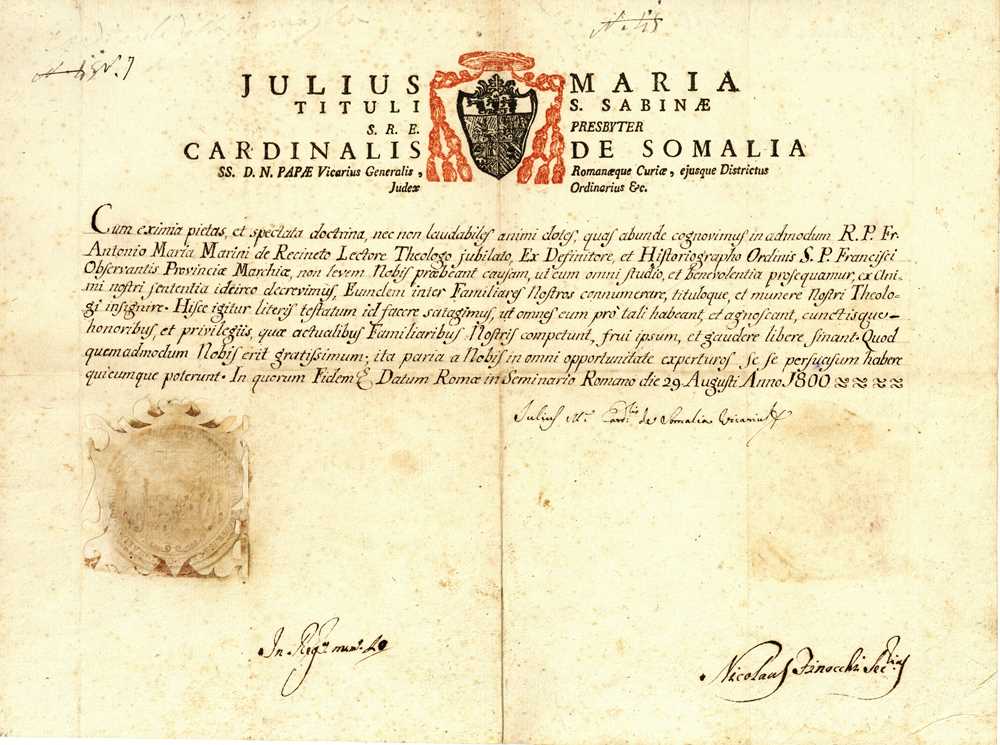 N. 45
JULIUS MARIA
TITULI S. SABINÆ
S. R. E. PRESBYTER
CARDINALIS DE SOMALIA
SS. D. N. PAPÆ Vicarius Generalis, Romanæque Curiæ, ejusque Districtus
Judex Ordinarius &c.
Cum eximia pietas, et spectata doctrina, nec non laudabiles animi dotes, quas abunde cognovimus in admodum R. P. Fr.
Antonio Maria Marini de Recineto Lectore Theologo jubilato, Ex Definitore, et Historiographo Ordinis S. P. Francisci
Observantis Provinciæ Marchiæ, non levem Nobis præbeant causam, ut eum omni studio, et benevolentia prosequamur, ex Ani-
mi nostri sententia idcirco decrevimus, Eumdem inter Familiares Nostros connumerare, tituloque, et munere Nostri Theolo-
gi insignire. Hisce igitur literis testatum id facere satagimus, ut omnes eum pro tali habeant, et agnoscant, cunctisque
honoribus, et privilegiis, quæ actualibus Familiaribus Nostris competunt, frui ipsum, et gaudere libere sinant. Quod
quemadmodum Nobis erit gratissimum, ita paria a Nobis in omni opportunitate experturos se se persuasum habere
quicumque poterunt. In quorum Fidem &c. Datum Romæ in Seminario Romano die 29 Augusti Anno 1800
Julius M. Card.lis de Somalia Vicarius
In Reg.
Nicolaus Finocchi Sec.rius